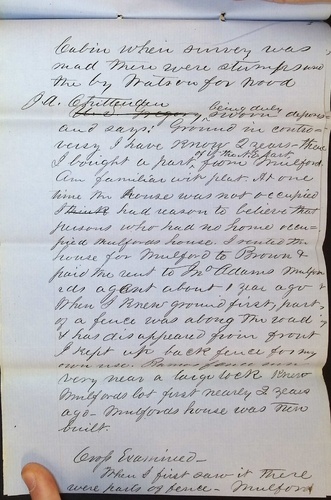 Cabin when survey was
mad there were stumps and
the by Watson for wood
J A. Chittenden
being duly sworn deposes
and says: Ground in contro-
versy I have know 2 years - that
I bought a part from Mulford
Am familiar with plat. At one
time the house was not occupied
I had reason to believe that
persons who had no home occu-
pied Mulfords house. I rented the
house for Mulford to Brown &
paid the rent to Mr Adams Mulfo
rds agent about 1 year ago
When I knew ground first, part
of a fence was along the road
& has disappeared from front
I kept up back fence for my
own use.
very near a large rock Knew
Mulfords lot first nearly 2 years
ago - Mulfords house was then
built.
Crop Examined -
When I first saw it there
were parts of fence - Mulford